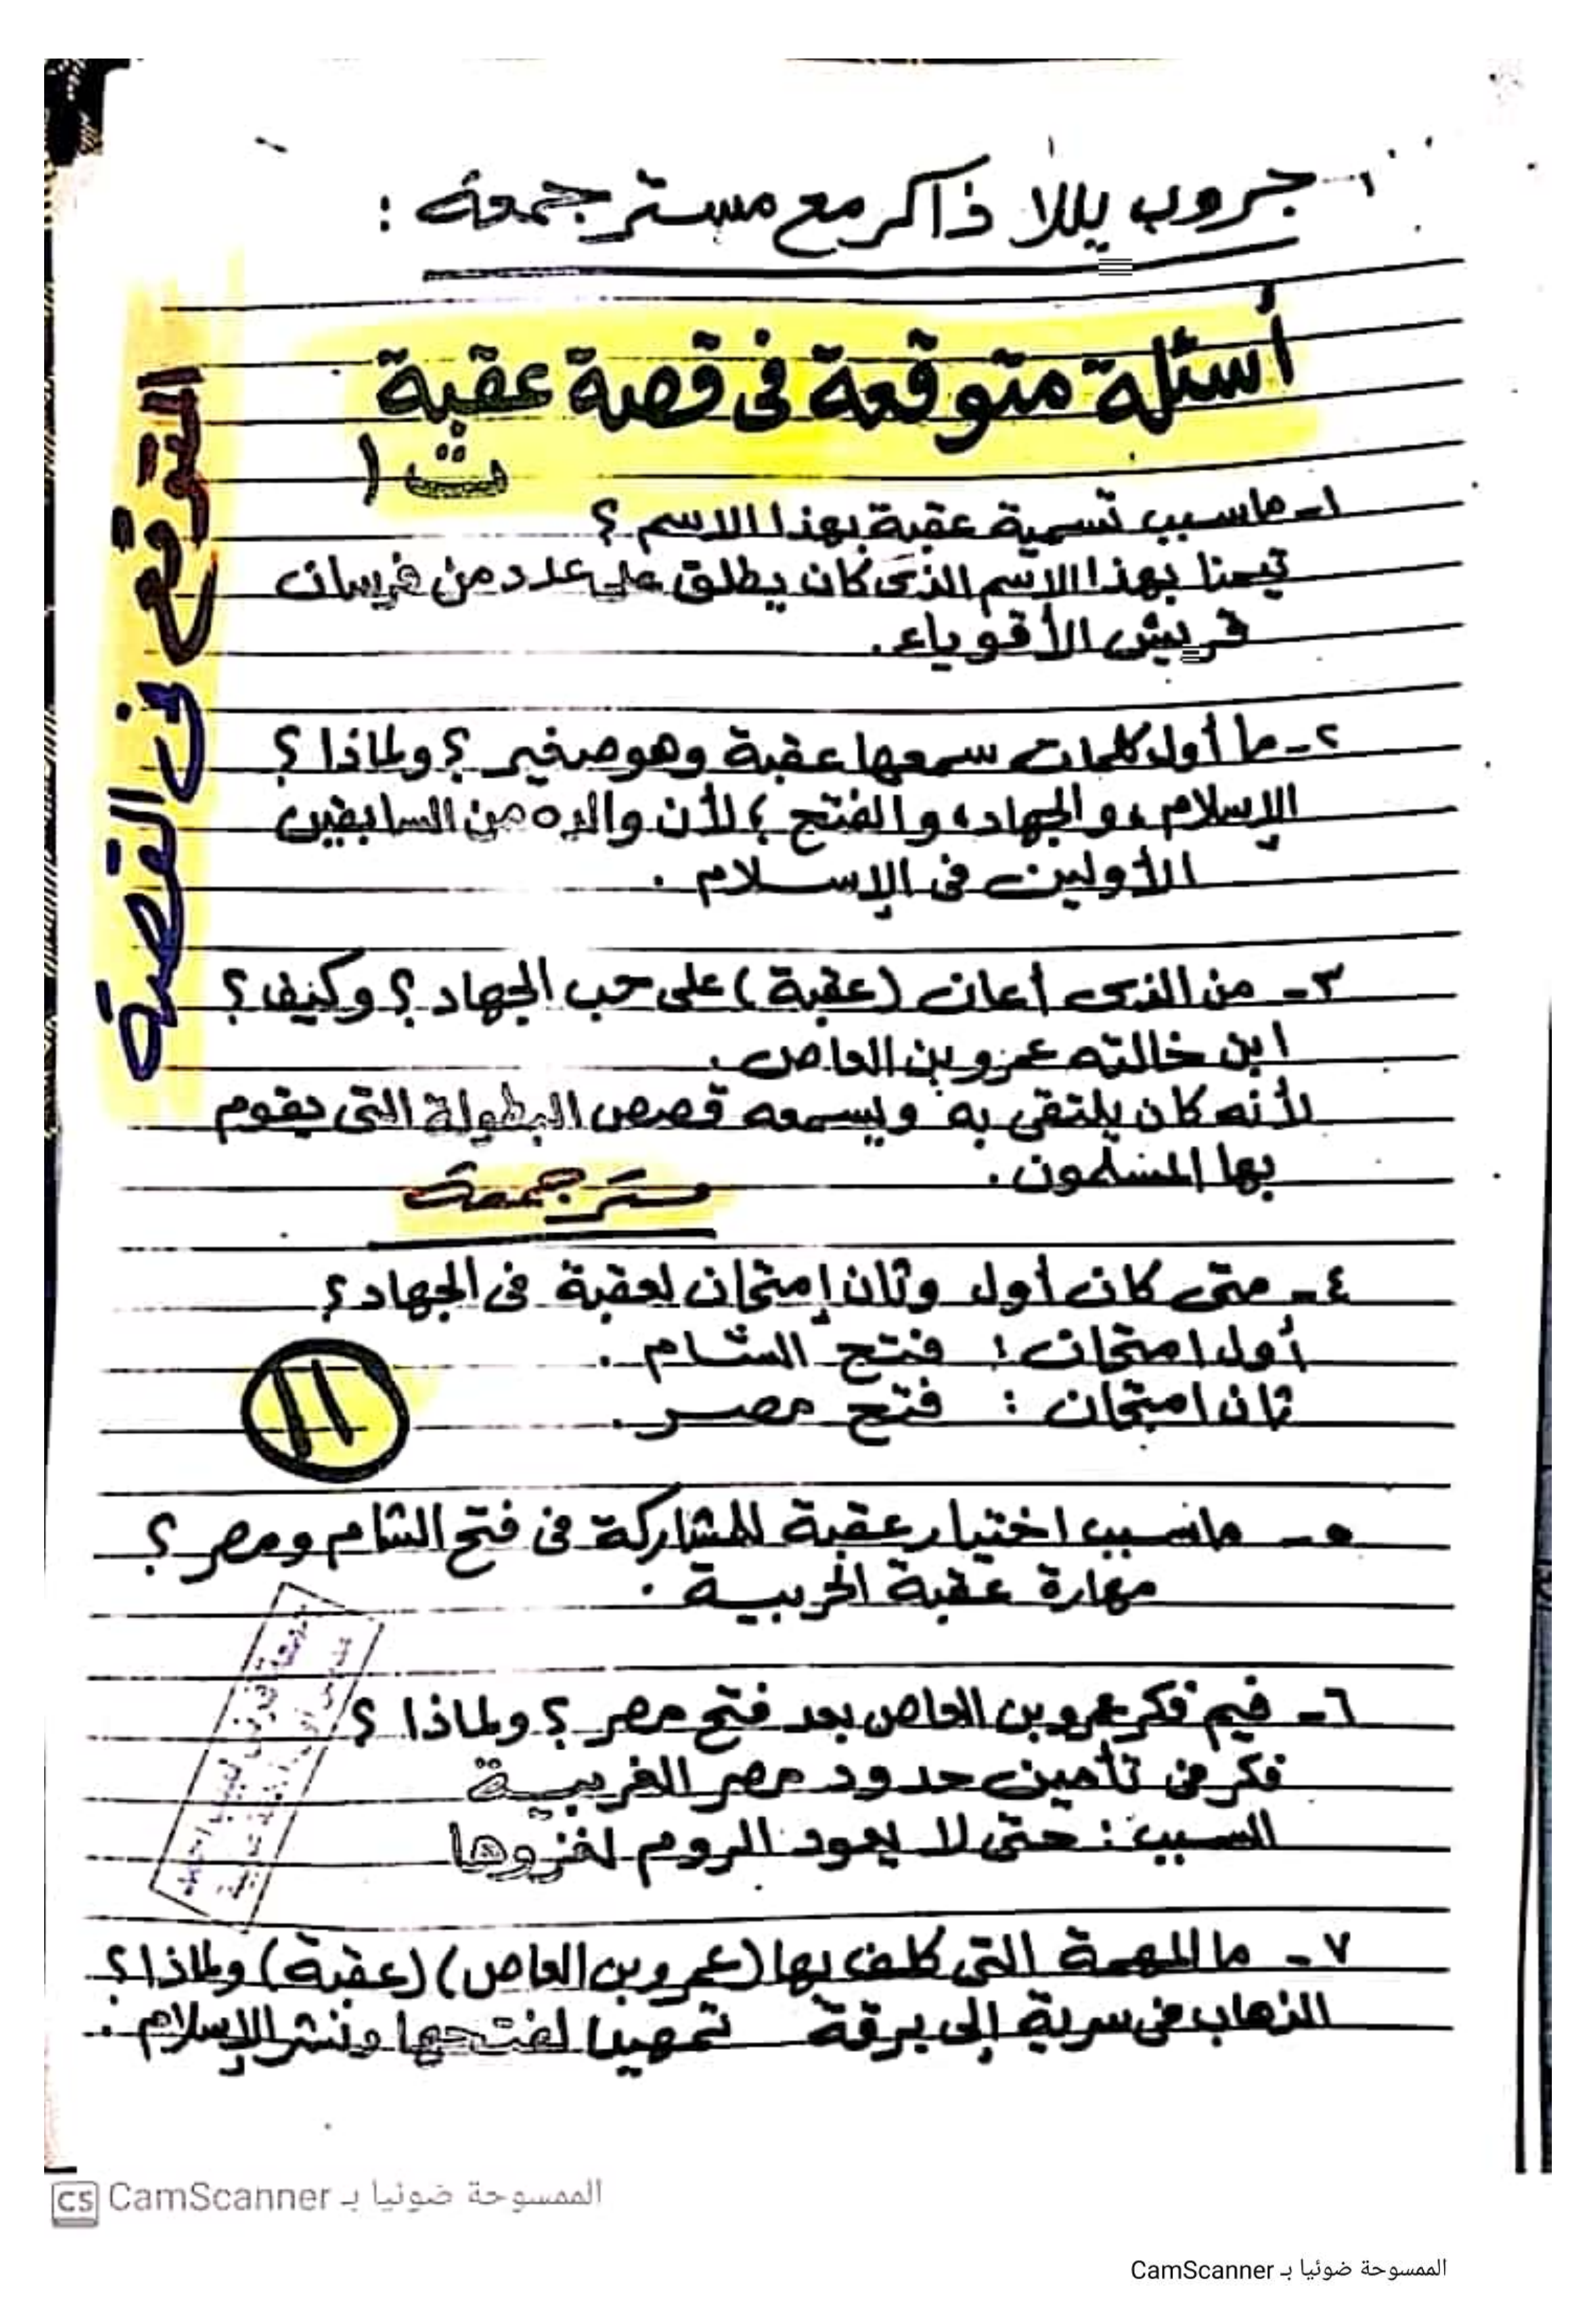 جروب يللا ذاكر مع مستر جمعة :
أسئلة متوقعة فى قصة عقبة
ث ١
المتوقع فى القصة
١- ما سبب تسمية عقبة بهذا الاسم ؟
تيمنا بهذا الاسم الذى كان يطلق على عدد من فرسان
قريش الأقوياء .
٢- ما أول كلمات سمعها عقبة وهو صغير ؟ ولماذا ؟
الإسلام ، والجهاد ، والفتح ؛ لأن والده من السابقين
الأولين فى الإسلام .
٣- من الذى أعان (عقبة) على حب الجهاد ؟ وكيف ؟
ابن خالته عمرو بن العاص .
لأنه كان يلتقى به ويسمعه قصص البطولة التى يقوم
بها المسلمون .
مستر جمعة
٤- متى كان أول وثان إمتحان لعقبة فى الجهاد ؟
أول امتحان : فتح الشام .
ثان امتحان : فتح مصر .
١١
٥- ما سبب اختيار عقبة للمشاركة فى فتح الشام ومصر ؟
مهارة عقبة الحربية .
٦- فيم فكر عمرو بن العاص بعد فتح مصر ؟ ولماذا ؟
فكر فى تأمين حدود مصر الغربية
السبب : حتى لا يعود الروم لغزوها
٧- ما المهمة التى كلف بها (عمرو بن العاص) (عقبة) ولماذا ؟
الذهاب فى سرية إلى برقة تمهيدا لفتحها ونشر الإسلام .
CS CamScanner الممسوحة ضوئيا بـ
الممسوحة ضوئيا بـ CamScanner